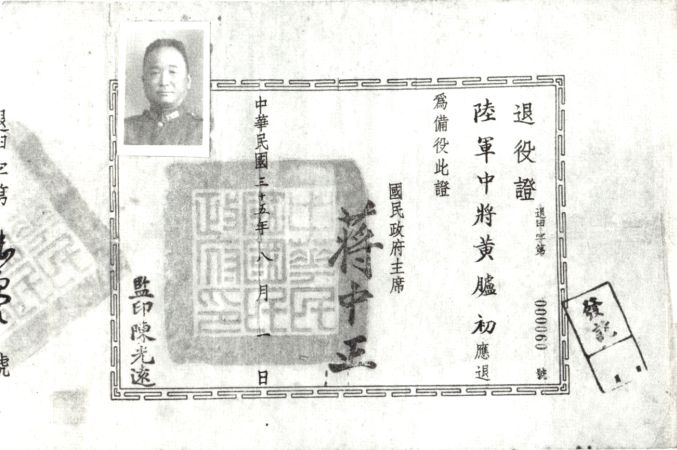 退役證
退田字第 000060 號
陸軍中將黃臚初應退
為備役此證
國民政府主席
蔣中正
中華民國三十五年八月一日
監印陳光遠
中華民國國民政府印
退田字第
號